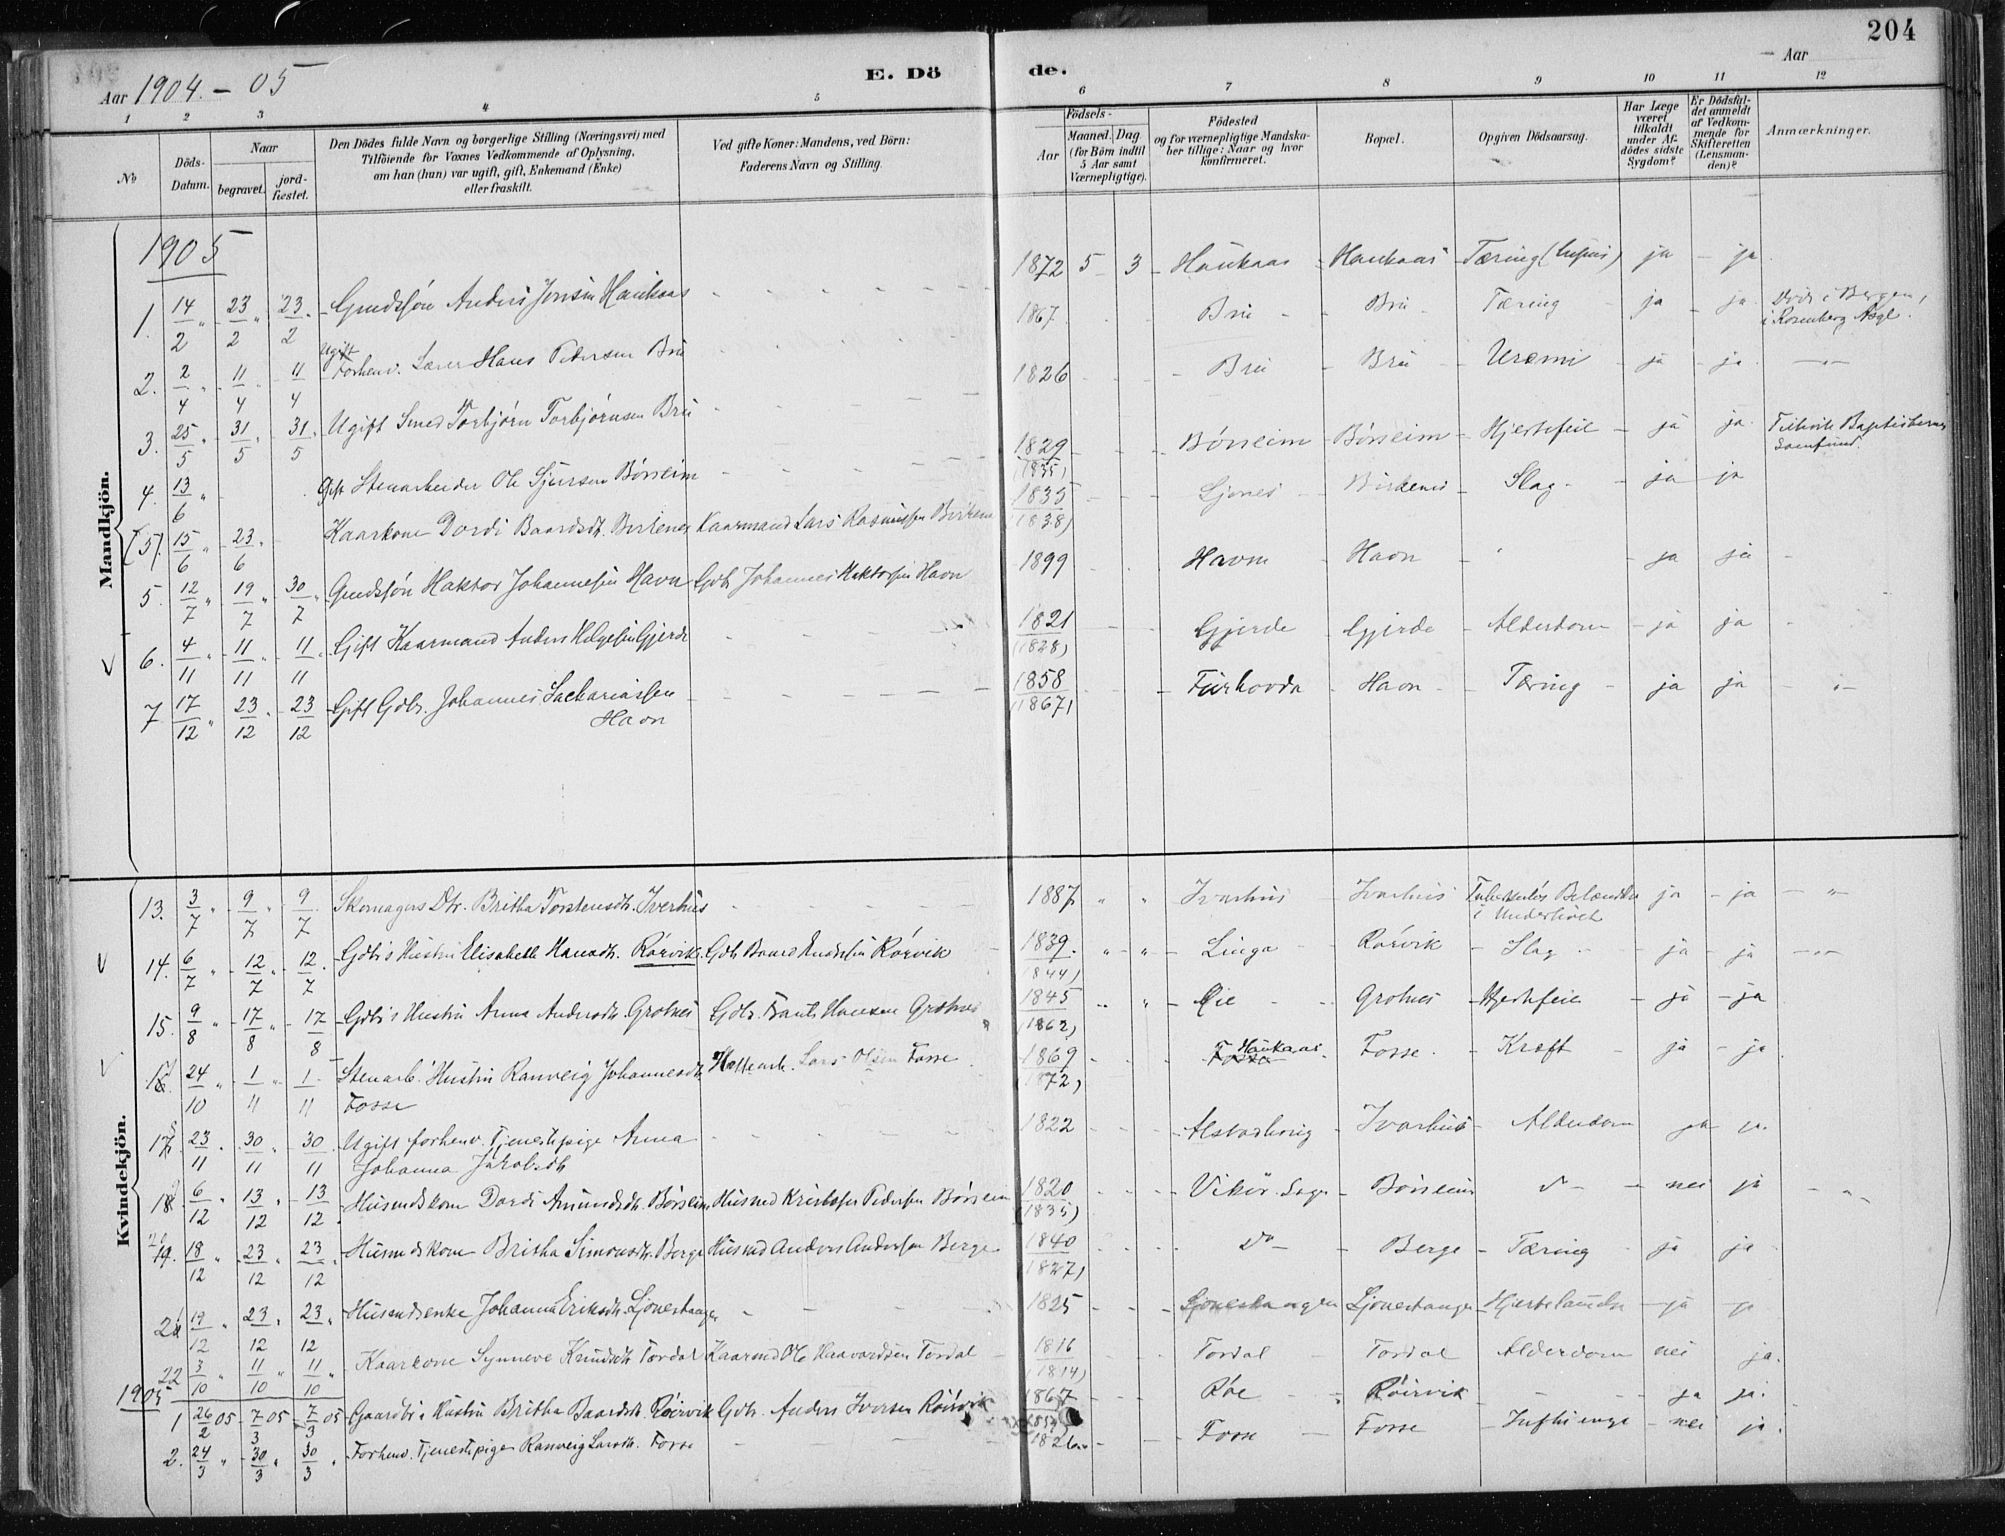 204
Aar 1904.-05
E. Dö
de.
Aar
1 2 3 4 5 6 7 8 9 10 11 12
No
Döds-Datum.
Naar
begravet.
jord-fæstet.
Den Dödes fulde Navn og borgerlige Stilling (Næringsvei) med
Tilföiende for Voxnes Vedkommende af Oplysning,
om han (hun) var ugift, gift, Enkemand (Enke)
eller fraskilt.
Ved gifte Koner: Mandens, ved Börn:
Faderens Navn og Stilling.
Födsels-
Aar
Maaned. Dag
(for Börn indtil
5 Aar samt
Værnepligtige).
Födested
og for værnepligtige Mandska-
ber tillige: Naar og hvor
konfirmeret.
Bopæl.
Opgiven Dödsaarsag.
Har Læge
været
tilkaldt
under Af-
dödes sidste
Sygdom?
Er Dödsfal-
det anmeldt
af Vedkom-
mende for
Skifteretten
(Lensman-
den)?
Anmærkninger.
Mandkjön.
1905
1. 14/2 " 23/2 " 23/2 Gmdssøn Anders Jonsen Haukaas 1872 5 3 Haukaas Haukaas Tæring (lupus) ja ja
2. 2/4 " 11/4 11/4 Ugift Forhenv. Lærer Hans Pedersen Bru 1867 Bru Bru Tæring ja ja Døde i Bergen, i Rosenberg Asyl.
3. 25/5 " 31/5 31/5 Ugift Smed Torbjørn Torbjørnsen Bru 1826 Bru Bru Uræmi ja ja -"-
4. 13/6 " Gift Stenarbeider Ole Sjursen Børseim 1829 (1835) Børseim Børseim Hjertefeil ja ja Tilhørte Baptisternes Samfund.
[5]. 15/6 " 23/6 Kaarkone Dordi Baardsdt. Birkenes Kaarmand Lars Rasmussen Birkenes 1835 (1838) Ljones Birkenes Slag ja ja
5. 12/7 " 19/7 " 30/7 " Gmdssøn Haktor Johannessen Havn Gbr Johannes Haktorsen Havn 1899 Havn Havn " ja ja
6. 4/11 " 11/11 " 11/11 Gift Kaarmand Anders Helgesen Gjerde 1821 (1828) Gjerde Gjerde Alderdom ja ja
7 17/12 " 23/12 " 23/12 Gift Gbr. Johannes Sachariassen Havn 1858 (1867) Furhovda Havn Tæring ja ja -"-
Kvindekjön.
13. 3/7 " 9/7 " 9/7 Skomagers Dtr. Britha Torstensdt. Iverhus 1887 " " Ivarhus Ivarhus Tuberkuløs Betændelse i Underlivet ja ja "
14. 6/7 " 12/7 " 12/7 Gbr's Hustru Elisabeth Hansdt. Rørvik Gbr Baard Andersen Rørvik 1839. (1844) " " Linga Rørvik Slag ja ja -"-
15. 9/8 " 17/8 17/8 Gbr's Hustru Anna Andersdt. Grotnes Gbr. Trants Hansen Grotnes 1845 (1862) " " Eie Grotnes Hjertefeil ja ja
24/10 " 1/11 " 1/11 Stenarb. Hustru Ranveig Johannesdt. Fosse Lars Olsen Fosse 1869 (1872) Haukaas Fosse Kræft ja ja
23/11 30/11 30/11 Ugift forhenv. Tjenestpige Anna Johanna Jakobsdt 1822 Ivarhus Alderdom ja ja
6/12 " 13/12 " 13/12 Husmdskone Dordi Amundsdt. Børseim Husmd Kristofer Pedersen Børseim 1820 (1835) Vikör Sogn Børseim do nei ja
18/12 " 23/12 23/12 Husmdskone Britha Simonsdt. Berge Husmd Anders Andersen Berge 1840 do Berge Tæring ja ja
19/12 " 23/12 " 23/12 " Husmdsenke Johanna Eriksdt. Ljonestangen 1825 Ljonestangen Ljonestangen ja ja
22 3/10 " 11/10 " 11/10 " Kaarkone Synneve Knudsdt Tordal Kaarmd Ole Haavardsen Tordal 1816 (1814) Tordal Tordal Alderdom nei ja.
1905
1 26/2 05 7/3 05 7/3 05 Gaardbr's Hustru Britha Baardsdt. Röirvik Gbr. Anders Iversen Röirvik 1867 Röe Röirvik ja ja.
2. 24/3 " 30/3 " 30/3 " Forhenv. Tjenestpige Ranveig Larsdt. Fosse 1826 Fosse Fosse nei ja.